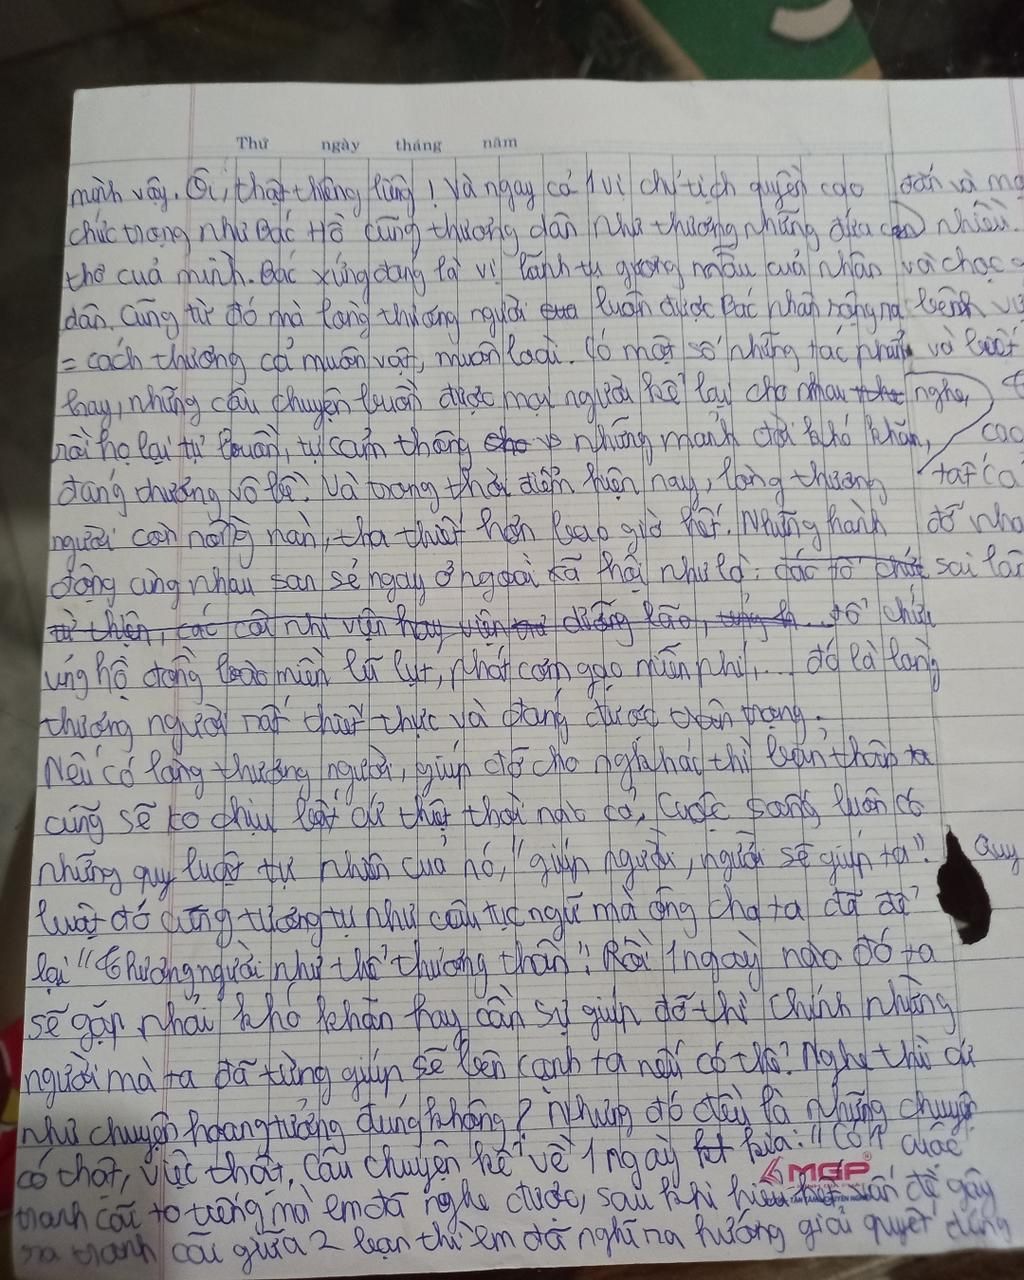 Thứ ngày tháng năm
mình vậy. Ôi, thật thiêng liêng! Và ngay cả 1 vị chủ tịch quyền cao
chức trọng như Bác Hồ cũng thương dân như thương những đứa con
thơ của mình. Bác xứng đáng là vị lãnh tụ gương mẫu của nhân
dân. Cũng từ đó mà lòng thương người luôn được Bác nhân rộng ra
= cách thương cả muôn vật, muôn loài. Có một số những tác phẩm
hay, những câu chuyện buồn được mọi người kể lại cho nhau nghe,
rồi họ lại tự buồn, tự cảm thông những mảnh đời khó khăn,
đáng thương vô bờ. Và trong thời điểm hiện nay, lòng thương
người còn nồng nàn, tha thiết hơn bao giờ hết. Những hành
động cùng nhau san sẻ ngay ở ngoài xã hội như là: các tổ chức
từ thiện, các cô nhi viện hay viện dưỡng lão, ... tổ chức
ủng hộ đồng bào miền lũ lụt, phát cơm gạo miễn phí,... đó là lòng
thương người rất thiết thực và đáng được trân trọng.
Nếu có lòng thương người, giúp đỡ cho ng khác thì bản thân ta
cũng sẽ ko chịu bất cứ thiệt thòi nào cả, cuộc sống luôn có
những quy luật tự nhiên của nó, "giúp người, người sẽ giúp ta". Quy
luật đó cũng tương tự như câu tục ngữ mà ông cha ta đã để
lại "Thương người như thể thương thân". Rồi 1 ngày nào đó ta
sẽ gặp phải khó khăn hay cần sự giúp đỡ thì chính những
người mà ta đã từng giúp sẽ bên cạnh ta nếu có thể. Nghe thì cứ
như chuyện hoang tưởng đúng không? Nhưng đó đều là những chuyện
có thật, việc thật. Câu chuyện kể về 1 ngày "Có 1 cuộc
MGP
tranh cãi to tiếng mà em đã nghe được, sau khi vấn đề gây
ra tranh cãi giữa 2 bạn thì em đã nghĩ ra hướng giải quyết đúng
đắn và
nhiều.
và học
bệnh
và bước
cao
tất cả
đỡ
sai lầm